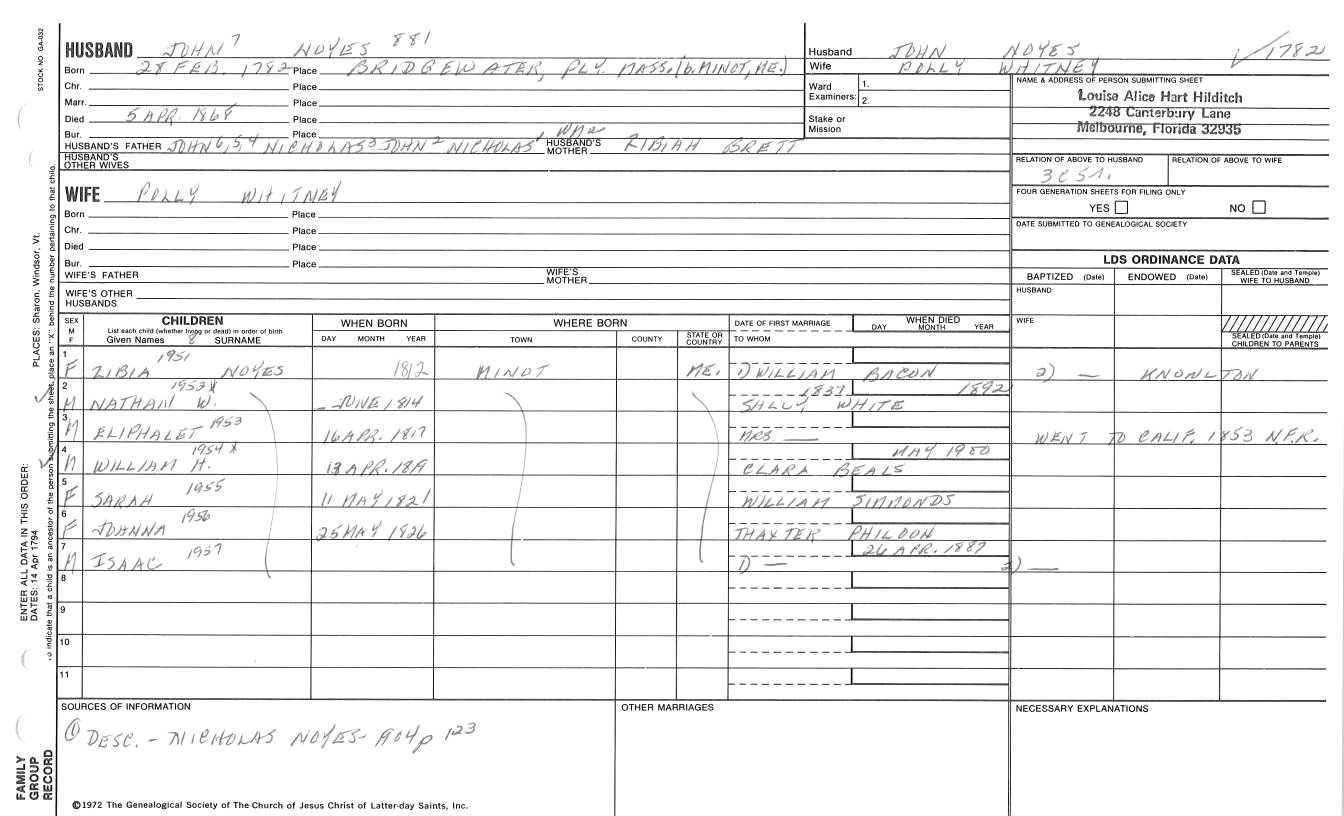 STOCK NO. GA-032
HUSBAND JOHN 7 NOYES 881
Born 28 FEB. 1782 Place BRIDGEWATER, PLY. MASS. (b. MINOT, ME.)
Chr. Place
Marr. Place
Died 5 APR. 1868 Place
Bur. Place
HUSBAND'S FATHER JOHN 6,5,4 NICHOLAS 3 JOHN 2 NICHOLAS 1 HUSBAND'S MOTHER ZIBIAH BRETT
HUSBAND'S OTHER WIVES
WIFE POLLY WHITNEY
Born Place
Chr. Place
Died Place
Bur. Place
WIFE'S FATHER WIFE'S MOTHER
WIFE'S OTHER HUSBANDS
Husband JOHN NOYES 1782
Wife POLLY WHITNEY
Ward Examiners: 1.
2.
Stake or Mission
NAME & ADDRESS OF PERSON SUBMITTING SHEET
Louise Alice Hart Hilditch
2248 Canterbury Lane
Melbourne, Florida 32935
RELATION OF ABOVE TO HUSBAND RELATION OF ABOVE TO WIFE
FOUR GENERATION SHEETS FOR FILING ONLY
YES NO
DATE SUBMITTED TO GENEALOGICAL SOCIETY
LDS ORDINANCE DATA
BAPTIZED (Date) ENDOWED (Date) SEALED (Date and Temple) WIFE TO HUSBAND
HUSBAND
WIFE
SEALED (Date and Temple) CHILDREN TO PARENTS
SEX M F
CHILDREN
List each child (whether living or dead) in order of birth
Given Names 8 SURNAME
WHEN BORN
DAY MONTH YEAR
WHERE BORN
TOWN COUNTY STATE OR COUNTRY
DATE OF FIRST MARRIAGE
TO WHOM
WHEN DIED
DAY MONTH YEAR
1 F ZIBIA 1951 NOYES 1812 MINOT ME. 1) WILLIAM BACON 2) — KNOWLTON
2 M NATHAN W. 1952 X JUNE 1814 1837 1892 SALLY WHITE
3 M ELIPHALET 1953 16 APR. 1817 MRS — WENT TO CALIF. 1853 N.F.R.
4 M WILLIAM H. 1954 X 13 APR. 1819 MAY 1900 CLARA BEALS
5 F SARAH 1955 11 MAY 1821 WILLIAM SIMMONDS
6 F JOHNNA 1956 25 MAY 1826 THAXTER PHILOON
7 M ISAAC 1957 26 APR. 1887 1) — 2) —
8
9
10
11
SOURCES OF INFORMATION
① DESC. - NICHOLAS NOYES- 904 p 123
OTHER MARRIAGES
NECESSARY EXPLANATIONS
©1972 The Genealogical Society of The Church of Jesus Christ of Latter-day Saints, Inc.
PLACES: Sharon, Windsor, Vt.
ENTER ALL DATA IN THIS ORDER:
DATES: 14 Apr 1794
To indicate that a child is an ancestor of the person submitting the sheet, place an "X" behind the number pertaining to that child.
FAMILY GROUP RECORD